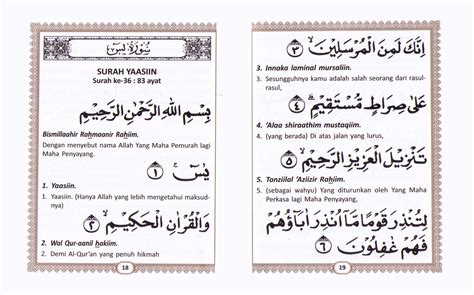 سورة يس
SURAH YAASIIN
Surah ke-36 : 83 ayat
بِسْمِ اللهِ الرَّحْمٰنِ الرَّحِيْمِ
Bismillaahir Raḥmaanir Raḥiim.
Dengan menyebut nama Allah Yang Maha Pemurah lagi
Maha Penyayang.
يٰسۤ ۚ ﴿١﴾
1. Yaasiin.
1. Yaasiin. (Hanya Allah yang lebih mengetahui maksud-
nya)
وَالْقُرْاٰنِ الْحَكِيْمِ ۙ ﴿٢﴾
2. Wal Qur-aanil ḥakiim.
2. Demi Al-Qur'an yang penuh hikmah
18
اِنَّكَ لَمِنَ الْمُرْسَلِيْنَ ۙ ﴿٣﴾
3. Innaka laminal mursaliin.
3. Sesungguhnya kamu adalah salah seorang dari rasul-
rasul,
عَلٰى صِرَاطٍ مُّسْتَقِيْمٍ ۗ ﴿٤﴾
4. 'Alaa shiraathim mustaqiim.
4. (yang berada) Di atas jalan yang lurus,
تَنْزِيْلَ الْعَزِيْزِ الرَّحِيْمِ ۙ ﴿٥﴾
5. Tanziilal 'Aziizir Raḥiim.
5. (sebagai wahyu) Yang diturunkan oleh Yang Maha
Perkasa lagi Maha Penyayang.
لِتُنْذِرَ قَوْمًا مَّآ اُنْذِرَ اٰبَاۤؤُهُمْ
فَهُمْ غٰفِلُوْنَ ﴿٦﴾
19